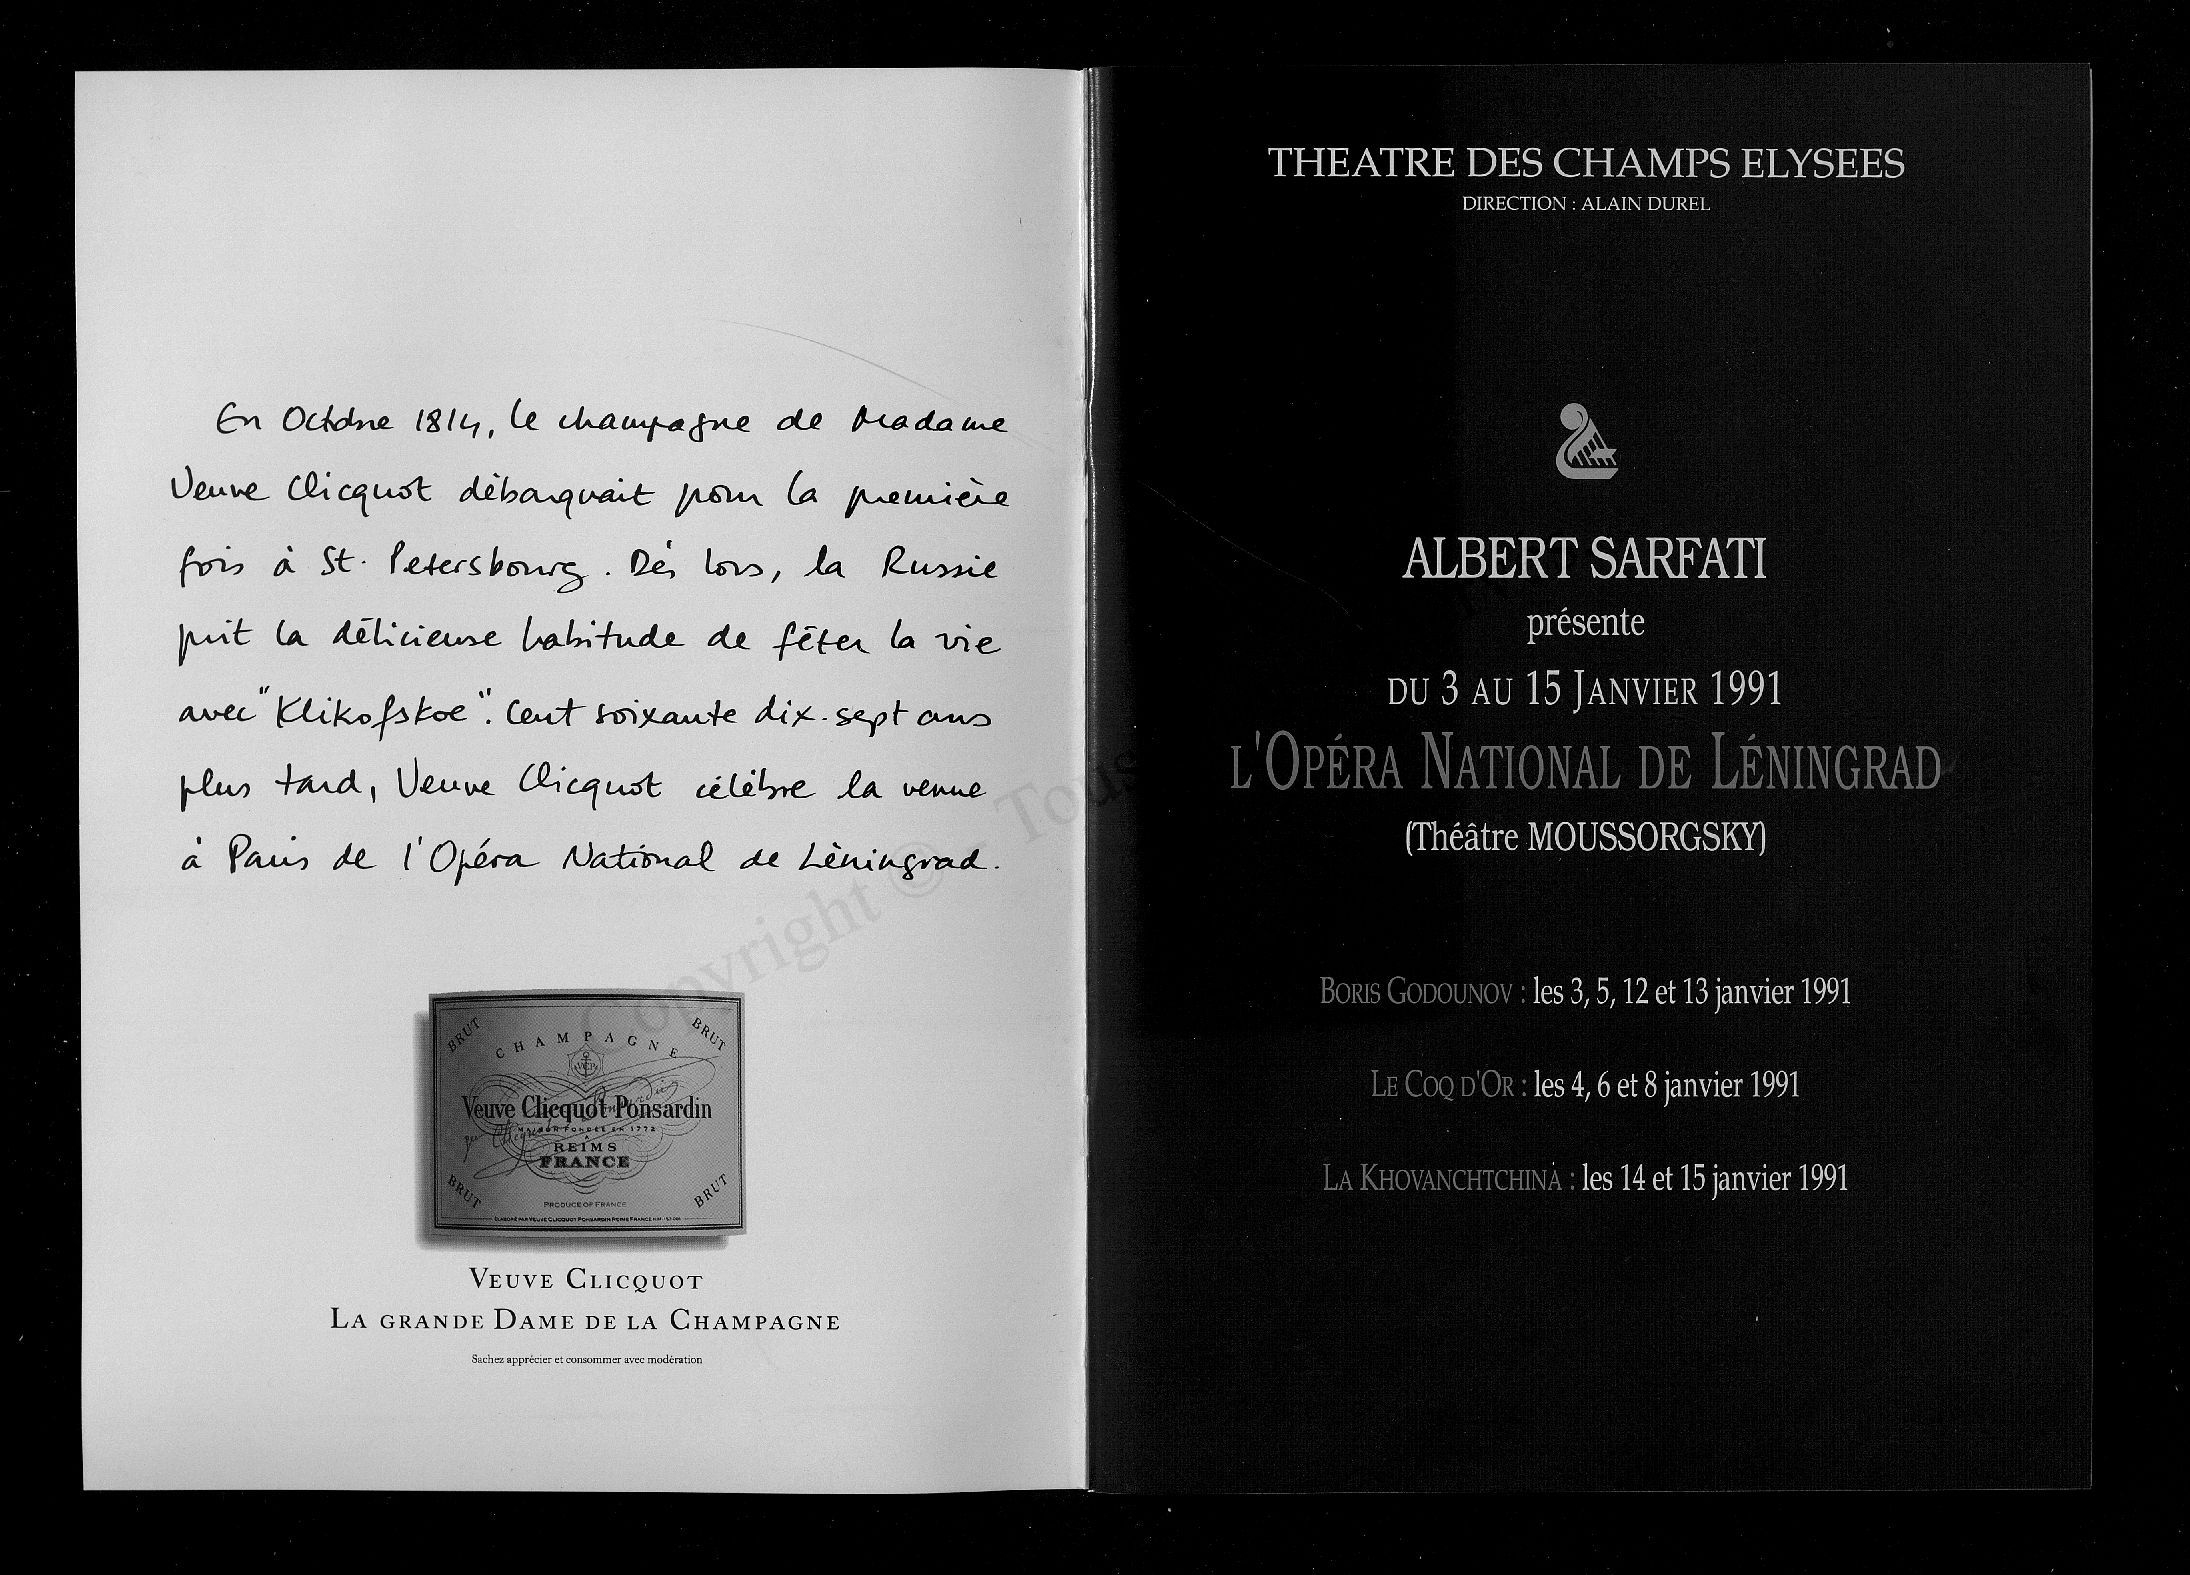 En Octobre 1814, le champagne de Madame
Veuve Clicquot débarquait pour la première
fois à St. Petersbourg. Dès lors, la Russie
prit la délicieuse habitude de fêter la vie
avec "Klikofskoe". Cent soixante dix-sept ans
plus tard, Veuve Clicquot célèbre la venue
à Paris de l'Opéra National de Léningrad.
BRUT BRUT
CHAMPAGNE
VCP
Veuve Clicquot Ponsardin
MAISON FONDÉE EN 1772
À
REIMS
FRANCE
BRUT BRUT
PRODUCE OF FRANCE
ELABORÉ PAR VEUVE CLICQUOT PONSARDIN REIMS FRANCE
VEUVE CLICQUOT
LA GRANDE DAME DE LA CHAMPAGNE
Sachez apprécier et consommer avec modération
Copyright © - Tous
THEATRE DES CHAMPS ELYSEES
DIRECTION : ALAIN DUREL
ALBERT SARFATI
présente
DU 3 AU 15 JANVIER 1991
L'OPÉRA NATIONAL DE LÉNINGRAD
(Théâtre MOUSSORGSKY)
BORIS GODOUNOV : les 3, 5, 12 et 13 janvier 1991
LE COQ D'OR : les 4, 6 et 8 janvier 1991
LA KHOVANCHTCHINA : les 14 et 15 janvier 1991